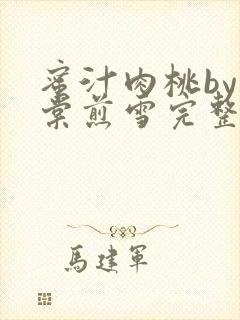 蜜汁肉桃by
棠煎雪完整
馬建軍